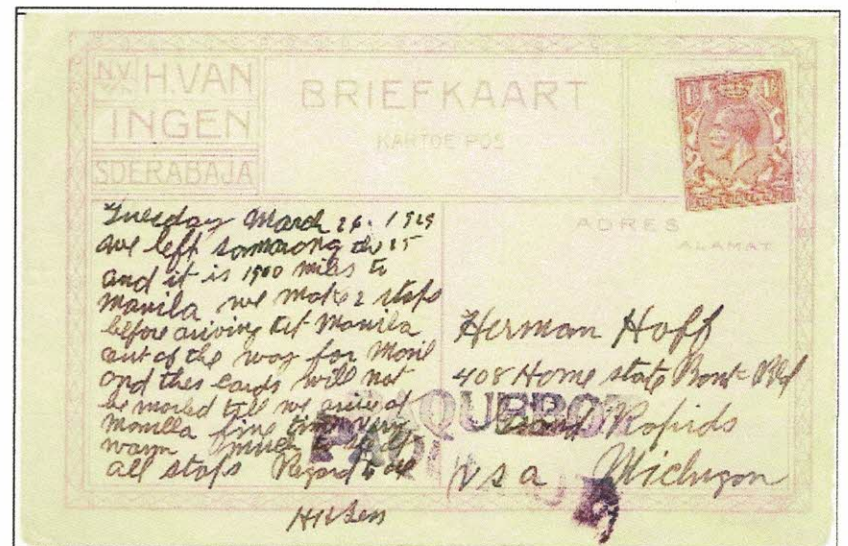 N.V. H. VAN
INGEN
SOERABAJA
BRIEFKAART
KARTOE POS
ADRES
ALAMAT
Tuesday March 26. 1929
we left Samarang the 25
and it is 1900 miles to
Manila. we make 2 stops
before ariving tet Manila
out of the way for Monil
and thes cards will not
be mailed till we arive at
Manilla fine very
warm much to
all stops Regard to all
Herman Hoff
408 Home state Bld
Grand Rapids
U S A Michigan
PAQUEBOT
PAQUEBOT